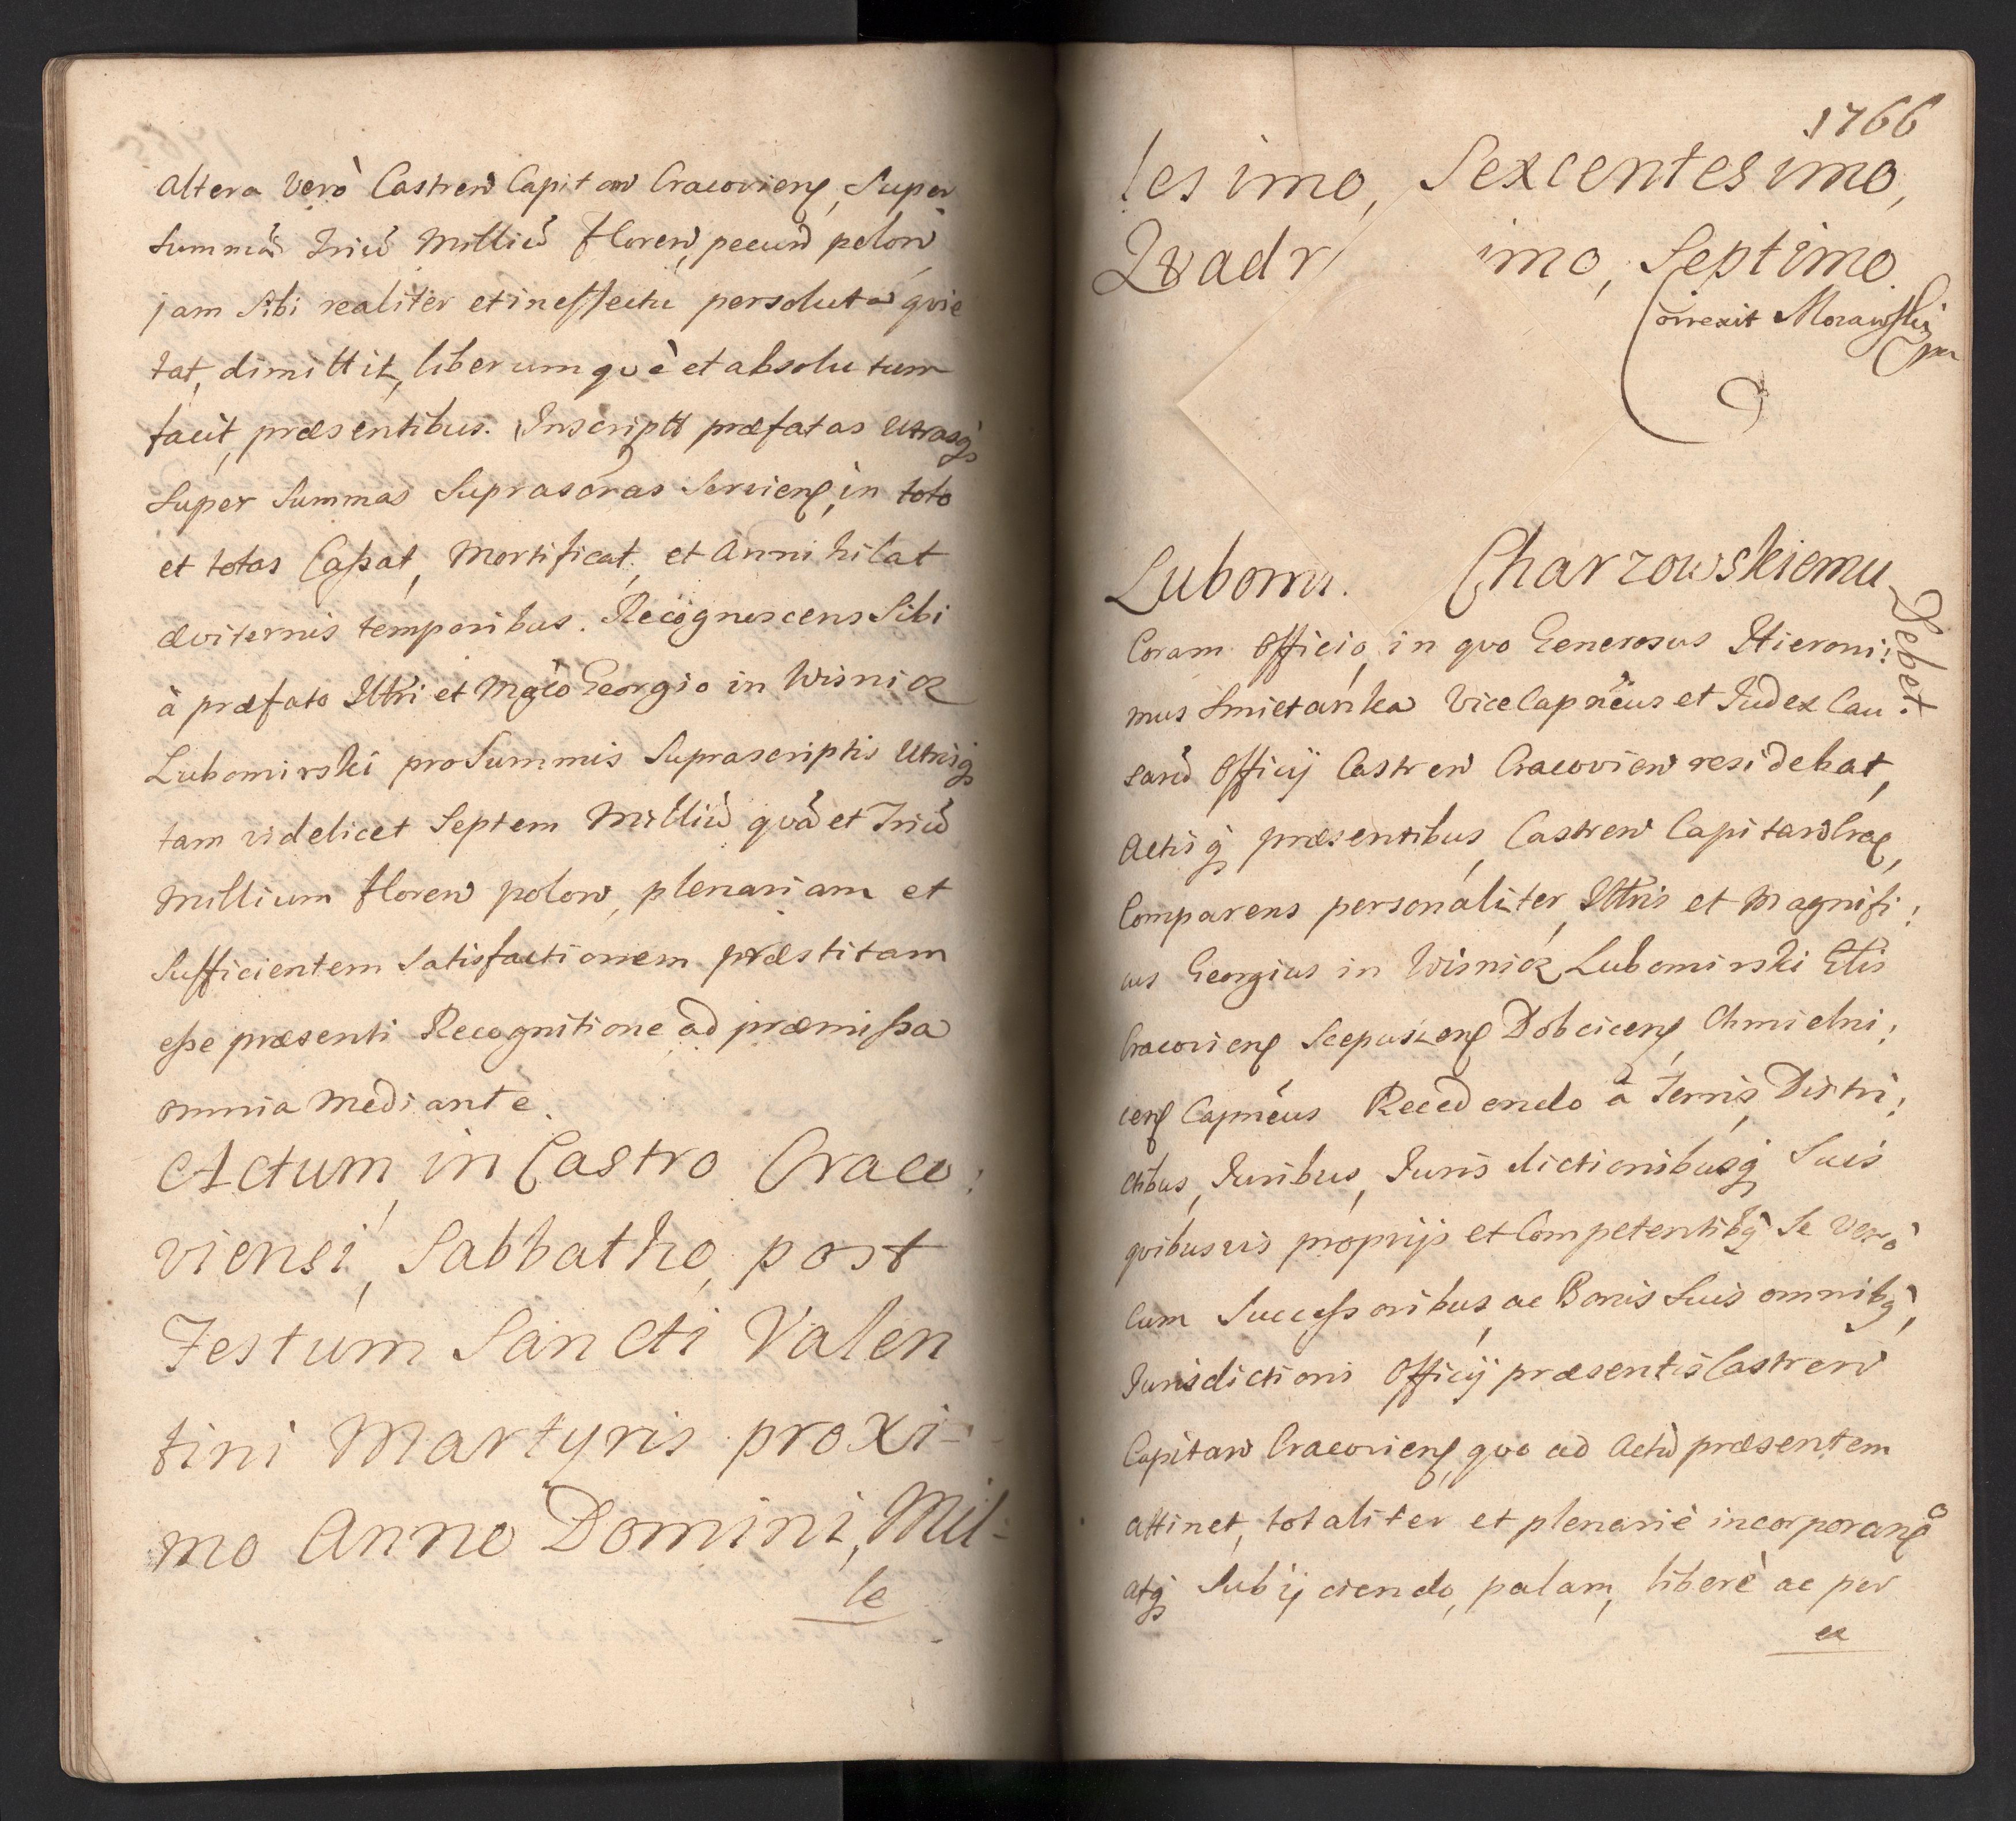 altera verò Castren Capitan Cracovien, Super
summā Triū Milliū Floren, pecun polon
jam sibi realiter et in effectu persoluta qvie
tat, dimittit, liberum qvè et absolutum
facit, præsentibus. Inscriptt præfatas utrasq
super summas Suprascras servien, in toto
et totas Caſsat, Mortificat, et Annihilat
æviternis temporibus. Recognoscens Sibi
à præfato Illtri et Mgco Georgio in Wisnicz
Lubomirski pro Summis Suprascriptis utrisq
tam videlicet Septem Milliū qvā et Triū
Millium floren polon, plenariam et
Sufficientem Satisfactionem præstitam
eſse præsenti Recognitione ad præmiſsa
omnia mediante.
Actum in Castro Craco:
viensi, Sabbatho post
Festum Sancti Valen
tini Martyris proxi-
mo Anno Domini, Mil-
le
1766
lesimo, Sexcentesimo,
Qvadr imo, Septimo.
Correxit Morawski
Lubomi. Charzowskiemu
Debet
Coram Officio, in qvo Generosus Hieroni:
mus Smietanka ViceCapneus et Judex Cau:
sarū Officij Castren Cracovien residebat,
Actisq præsentibus, Castren Capitan Crac,
Comparens personaliter, Illtris et Magnifi:
cus Georgius in Wisnicz Lubomirski Ctis
Cracovien Scepusien Dobcicen, Chmielni:
cen Capneus Recedendo à Terris, Distri:
ctibus, Juribus, Jurisdictionibusq Suis
qvibusvis proprijs et Competentibq Se verò
cum Succeſsoribus, ac Bonis Suis omnibq,
Jurisdictioni Officij præsentis Castren
Capitan Cracovien, qvo ad Actū præsentem
attinet, totaliter et plenariè incorporano
atq Subijciendo, palam, liberè ac per
ex